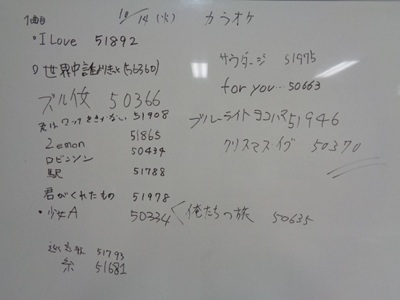 1曲目
10/14(火) カラオケ
・I Love 51892
世界中誰よりきっと(56360)
ズルい女 50366
51908
Lemon 51865
ロビンソン 50434
駅 51788
君がくれたもの 51978
・少女A 50334
51793
糸 51681
サウダージ 51975
for you… 50663
ブルーライトヨコハマ 51946
クリスマス・イヴ 50370
俺たちの旅 50635